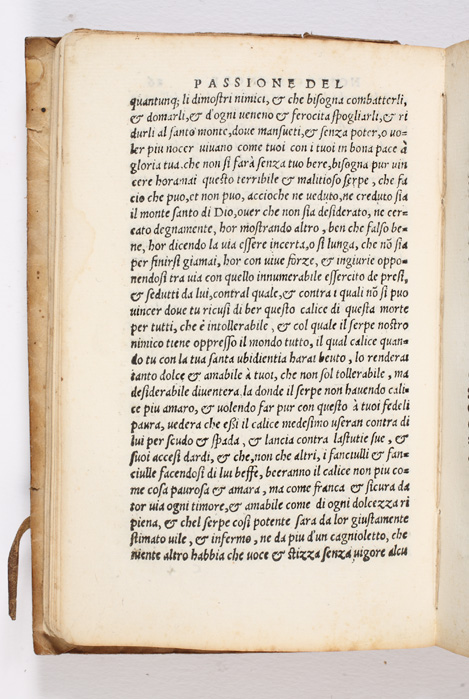 PASSIONE DEL
quantunq; li dimostri nimici, & che bisogna combatterli,
& domarli, & d'ogni ueneno & ferocita spogliarli, & ri
durli al santo monte, doue mansueti, & senza poter, o uo-
ler piu nocer uiuano come tuoi con i tuoi in bona pace à
gloria tua. che non si farà senza tuo bere, bisogna pur uin
cere horamai questo terribile & malitioso serpe, che fa
cio che puo, et non puo, accioche ne ueduto, ne creduto sia
il monte santo di Dio, ouer che non sia desiderato, ne cer-
cato degnamente, hor mostrando altro, ben che falso be-
ne, hor dicendo la uia essere incerta, o si lunga, che nõ sia
per finirsi giamai, hor con uiue forze, & ingiurie oppo-
nendosi tra uia con quello innumerabile essercito de presi,
& sedutti da lui, contral quale, & contra i quali nõ si puo
uincer doue tu ricusi di ber questo calice di questa morte
per tutti, che è intollerabile, & col quale il serpe nostro
nimico tiene oppresso il mondo tutto, il qual calice quan-
do tu con la tua santa ubidientia harai beuto, lo renderai
tanto dolce & amabile à tuoi, che non sol tollerabile, ma
desiderabile diuentera, la donde il serpe non hauendo cali-
ce piu amaro, & uolendo far pur con questo à tuoi fedeli
paura, uedera che essi il calice medesimo useran contra di
lui per scudo & spada, & lancia contra lastutie sue, &
suoi accesi dardi, & che, non che altri, i fanciulli & fan-
ciulle facendosi di lui beffe, beeranno il calice non piu co-
me cosa paurosa & amara, ma come franca & sicura da
tor uia ogni timore, & amabile come di ogni dolcezza ri
piena, & chel serpe così potente sara da lor giustamente
stimato uile, & infermo, ne da piu d'un cagnioletto, che
niente altro habbia che uoce & stizza senza uigore alcu